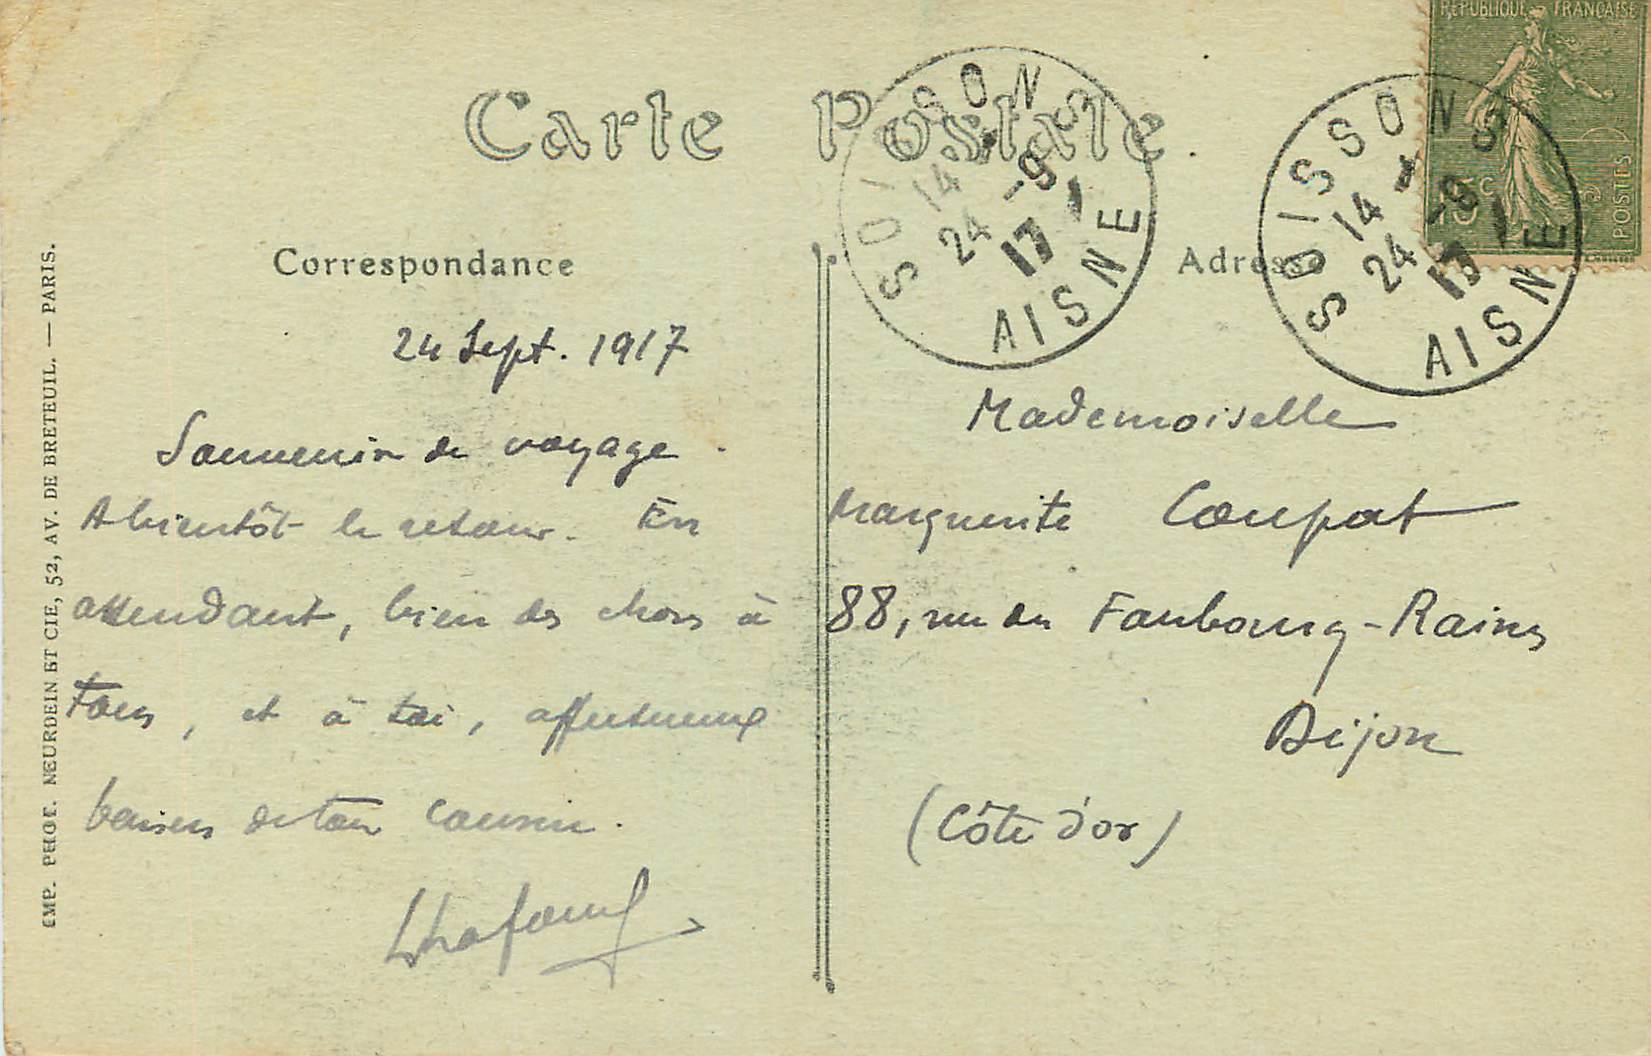 RÉPUBLIQUE FRANÇAISE
15c
POSTES
Carte Postale
SOISSONS
14
24 -9
17
AISNE
SOISSONS
14
24 -9
17
AISNE
Correspondance
Adresse
24 Sept. 1917
Souvenir de voyage.
A bientôt le retour. En
attendant, bien des choses à
tous, et à toi, affectueux
baisers de ton cousin.
Mademoiselle
Marguerite Coupat
88, rue du Faubourg-Raines
Dijon
(Côte d'or)
IMP. PHOT. NEURDEIN ET CIE, 52, AV. DE BRETEUIL. — PARIS.